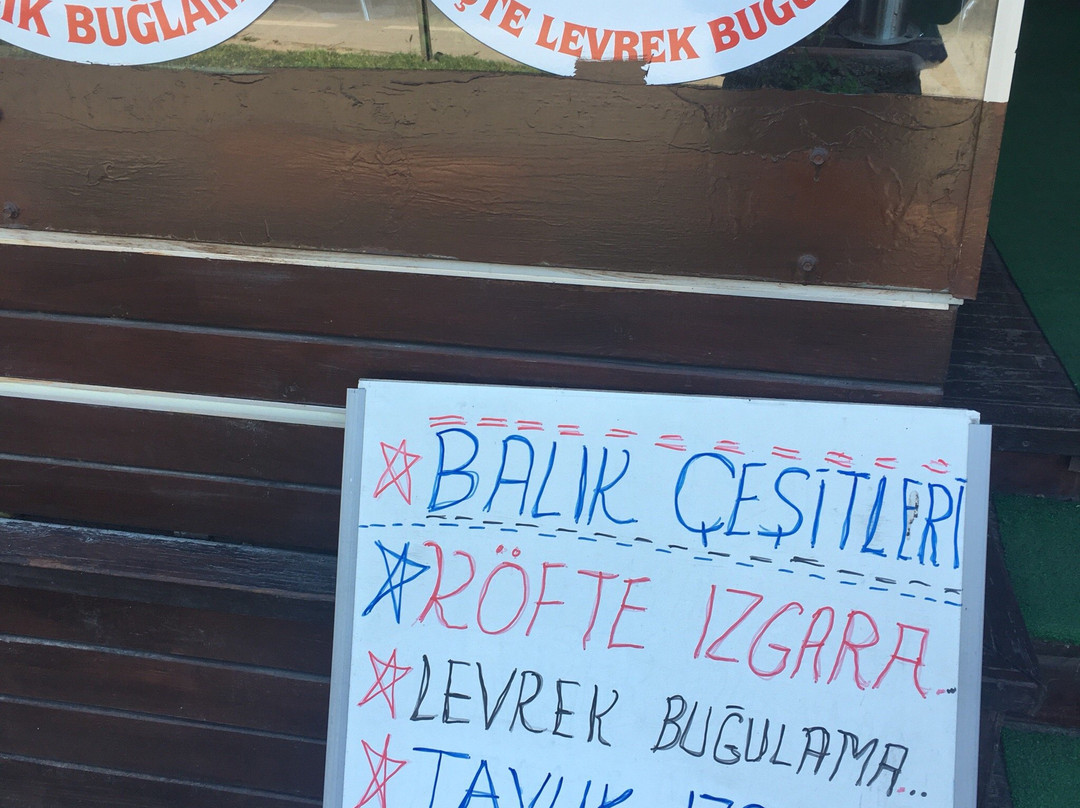 IK BUĞLAM
ŞTE LEVREK BUĞU
BALIK ÇEŞİTLERİ
KÖFTE IZGARA..
LEVREK BUĞULAMA...
TAVUK IZG